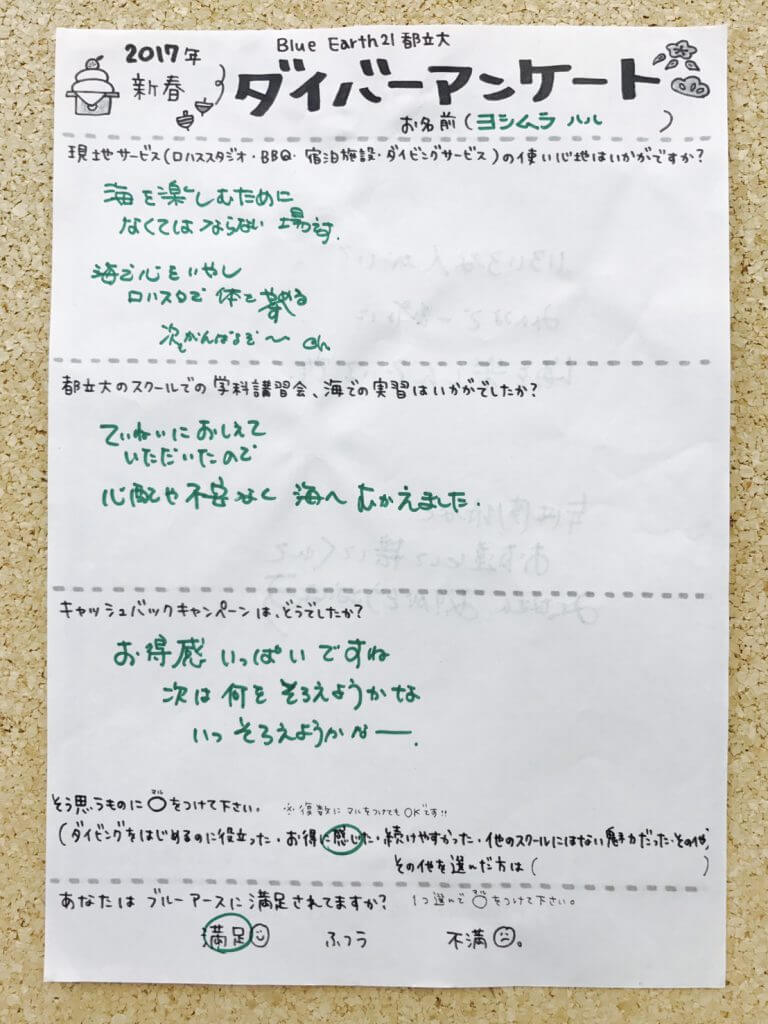 Blue Earth21 都立大
2017年
新春
ダイバーアンケート
お名前(ヨシムラ ハル )
現地サービス(ロハススタジオ・BBQ・宿泊施設・ダイビングサービス)の使い心地はいかがですか?
海を楽しむために
なくてはならない 場所.
海で心をいやし
ロハスタで 体で
次もがんばるぞ〜
都立大のスクールでの学科講習会、海での実習はいかがでしたか?
ていねいにおしえて
いただいたので
心配や不安なく 海へ むかえました.
キャッシュバックキャンペーンは、どうでしたか?
お得感 いっぱいですね
次は 何を そろえようかな
いつ そろえようかなー.
そう思うものに○をつけて下さい。 ※複数にマルをつけてもOKです!!
マル
(ダイビングをはじめるのに役立った・お得に感じた・続けやすかった・他のスクールにはない魅力だった・その他)
その他を選んだ方は( )
あなたは ブルーアースに満足されてますか? 1つ選んで○をつけて下さい。
マル
満足 ふつう 不満。